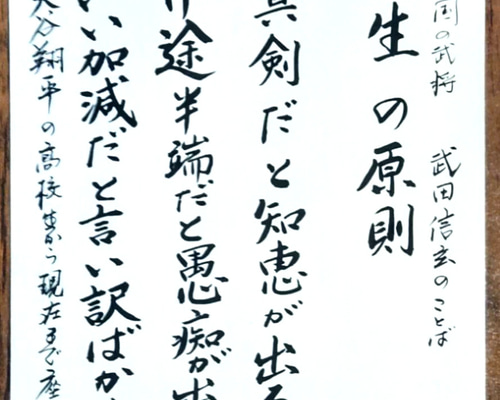 国の武将 武田信玄のことば
生の原則
真剣だと知恵が出る
途半端だと愚痴が出
い加減だと言い訳ばか
大谷翔平の高校時から現在まで座